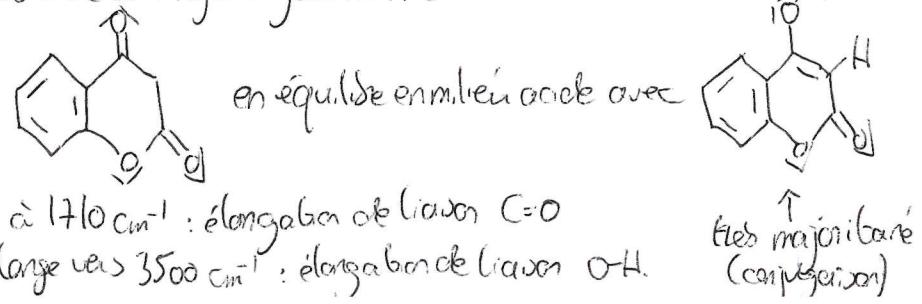 en équilibre en milieu acide avec
à 1710 cm⁻¹ : élongation de liaison C=O
large vers 3500 cm⁻¹ : élongation de liaison O-H.
très majoritaire
(conjugaison)